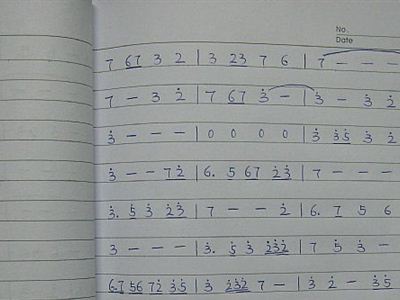 No.
Date
7 6̲7̲ 3 2 | 3 2̲3̲ 7 6 | 7 — — —
7 — 3 2̇ | 7 6̲7̲ 3̇ — | 3̇ — 3̇ 2̇
3̇ — — — | 0 0 0 0 | 3̇ 3̲̇5̲̇ 3̇ 2̇
3̇ — — 7̲2̲̇ | 6. 5̲ 6̲7̲ 2̲̇3̲̇ | 7 — — —
3̇. 5̲̇ 3̇ 2̲̇3̲̇ | 7 — — 2̇ | 6. 7̲ 5 6
3 — — — | 3̇. 5̲̇ 3̇ 2̲̇3̲̇2̲̇ | 7 5̇ 3̇ —
6̲.7̲ 5̲6̲ 7̲2̲̇ 3̲̇5̲̇ | 3̇ 2̲̇3̲̇2̲̇ 7 — | 3̇ 2̇ — 3̲̇5̲̇